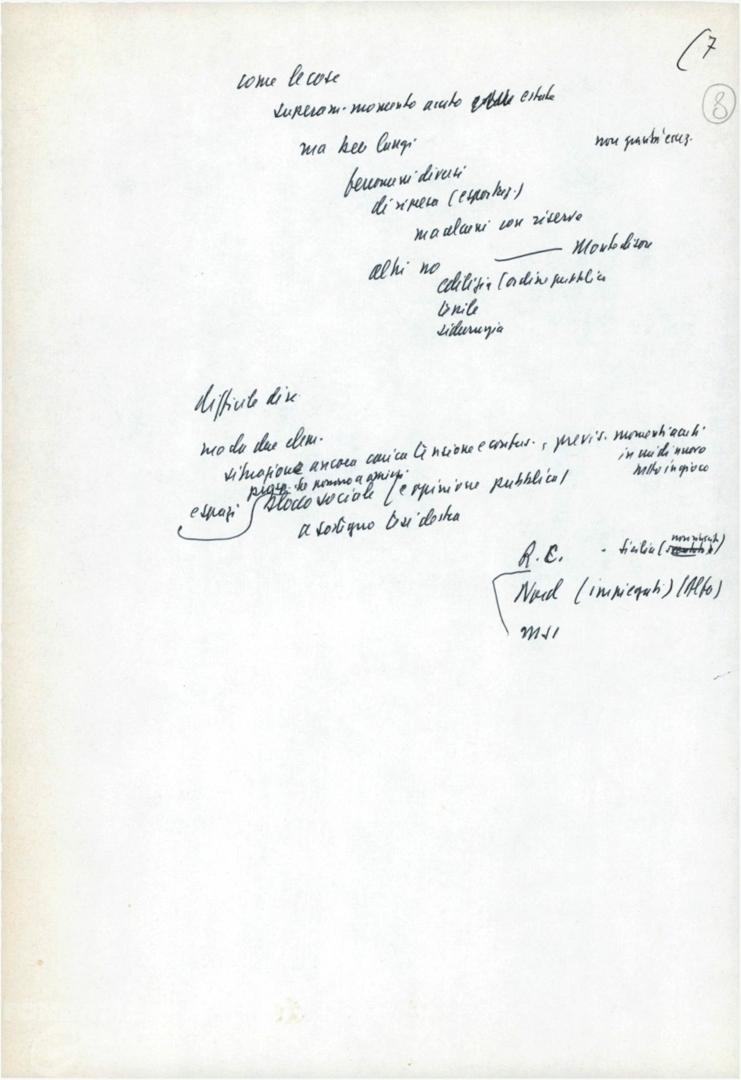 (7
8
come le cose
superam. momento acuto estate
ma ben lungi
non grandi
fenomeni diversi
di ripresa (esportaz.)
ma alcuni con riserva
Montedison
altri no
edilizia (ordine pubblico
tessile
siderurgia
difficile dire
ma da due elem.
situazione ancora carica tensione e confus., previs. momenti acuti
in cui di nuovo
tutto in gioco
e spazi blocco sociale (e opinione pubblica)
a sostegno tesi destra
R.C. - Sicilia (
Nord (impiegati) (Alto)
MSI